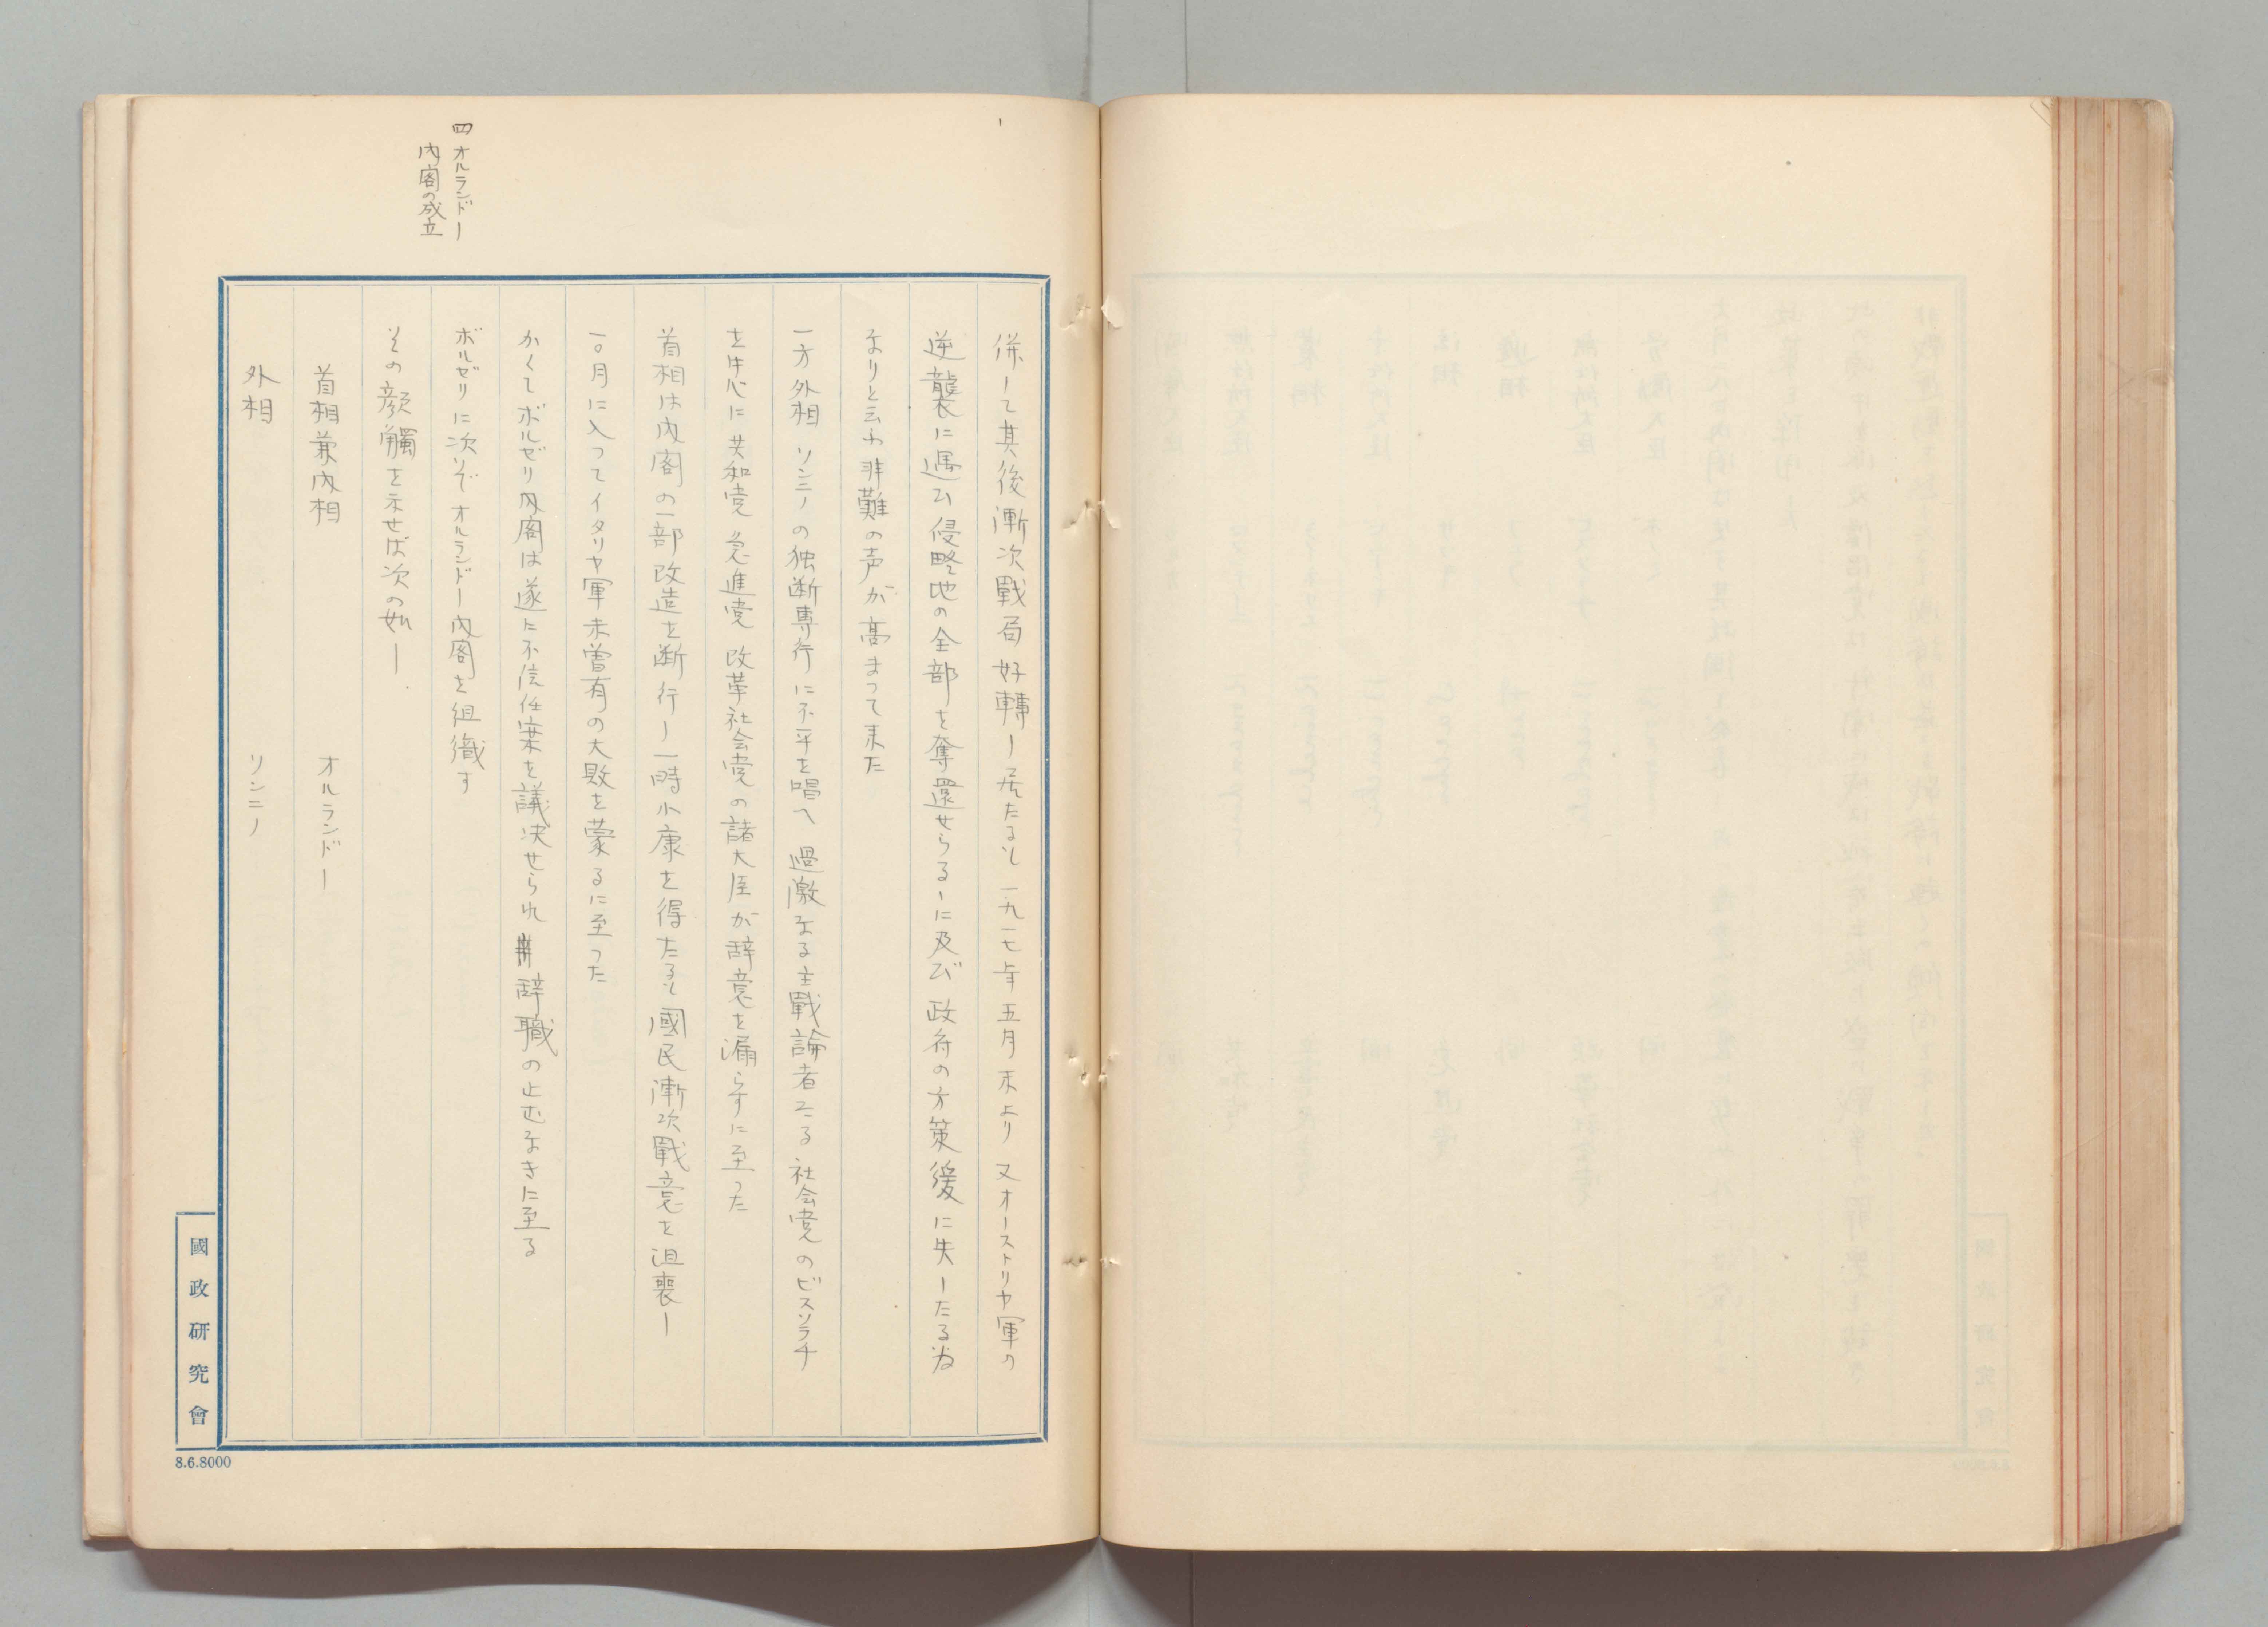 併して其後漸次戰局好轉し居たるも一九一七年五月末より又オーストリヤ軍の
逆襲に遇ひ侵略地の全部を奪還せらるゝに及び政府の方策後に失したる為
なりと云ふ非難の声が高まつて来た
一方外相ソンニノの独断專行に不平を唱へ過激なる主戰論者たる社会党のビスソラチ
を中心に共和党急進党改革社会党の諸大臣が辞意を漏らすに至つた
首相は内閣の一部改造を断行し一時小康を得たるも國民漸次戰意を沮喪し
一〇月に入つてイタリヤ軍未曽有の大敗を蒙るに至つた
かくてボルゼリ内閣は遂に不信任案を議決せられ辞職の止むなきに至る
四 オルランドー
内閣の成立
ボルゼリに次いでオルランドー内閣を組織す
その顔觸を示せば次の如し
首相兼内相 オルランドー
外相 ソンニノ
國政研究會
8.6.8000